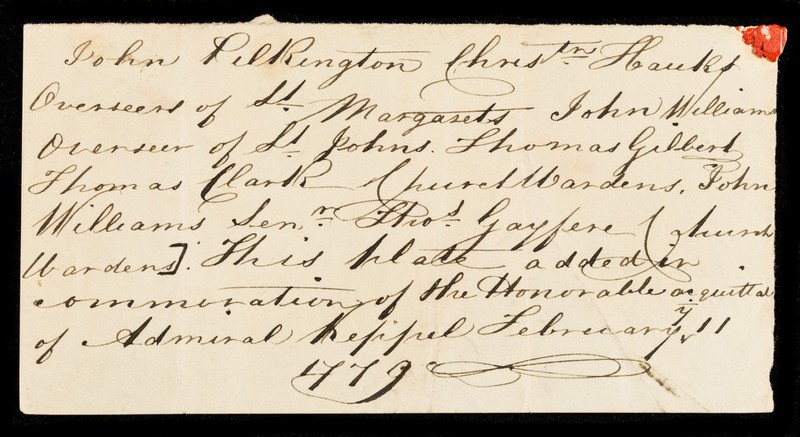 John Pilkington Christn Hauks
Overseers of St Margarets John Williams
Overseer of St Johns. Thomas Gilbert
Thomas Clark Church Wardens. John
Williams Senr Thos Gayfere Church
Wardens]. This plate added in
commoration of the Honorable acquittal
of Admiral Keppel February ye 11
1779